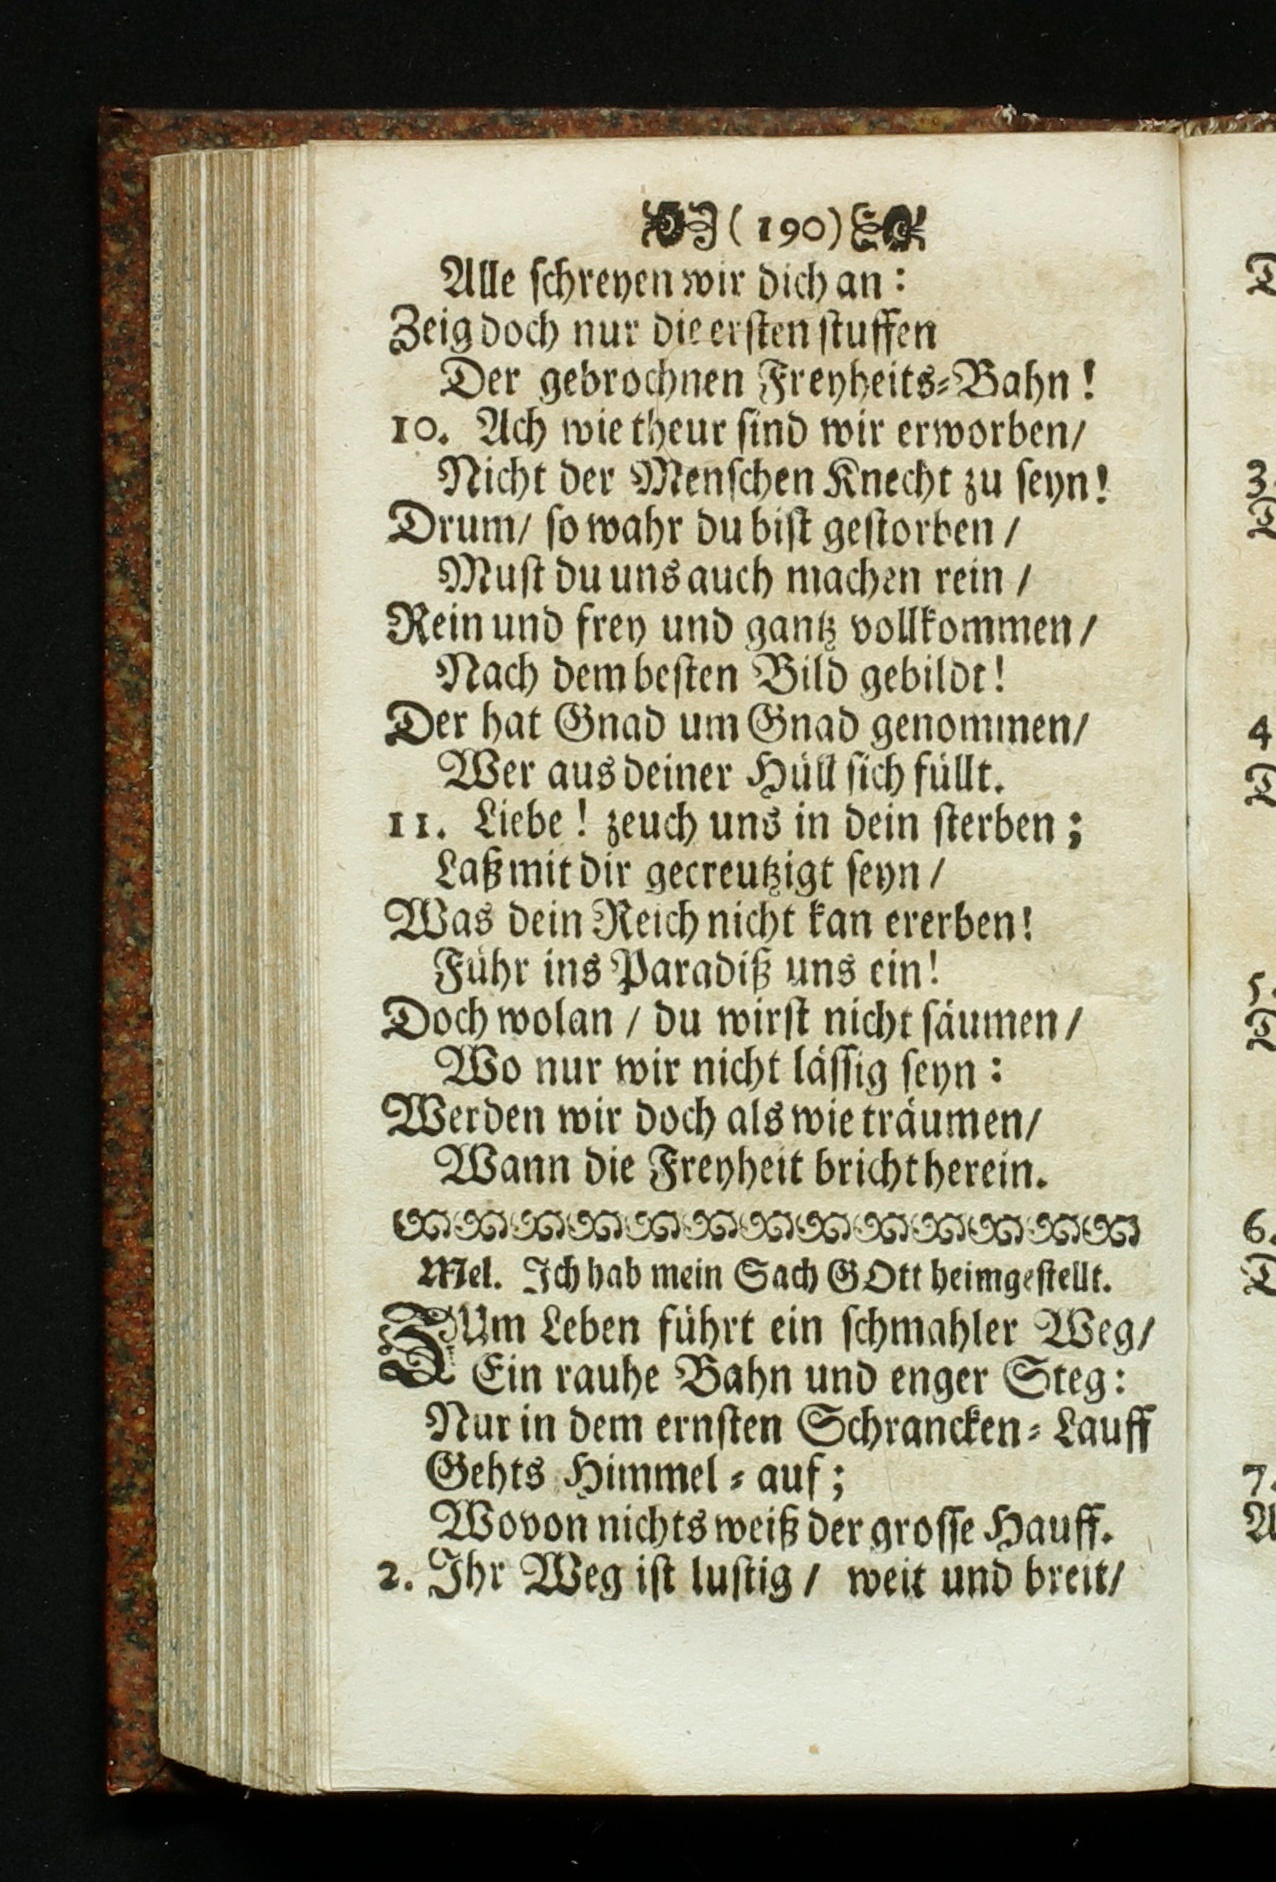 ( 190)
Alle schreyen wir dich an:
Zeig doch nur die ersten stuffen
Der gebrochnen Freyheits-Bahn!
10. Ach wie theur sind wir erworben/
Nicht der Menschen Knecht zu seyn!
Drum/ so wahr du bist gestorben /
Must du uns auch machen rein /
Rein und frey und gantz vollkommen/
Nach dem besten Bild gebildt!
Der hat Gnad um Gnad genommen/
Wer aus deiner Hüll sich füllt.
11. Liebe! zeuch uns in dein sterben;
Laß mit dir gecreutzigt seyn /
Was dein Reich nicht kan ererben!
Führ ins Paradiß uns ein!
Doch wolan / du wirst nicht säumen /
Wo nur wir nicht lässig seyn:
Werden wir doch als wie träumen/
Wann die Freyheit bricht herein.
Mel. Ich hab mein Sach GOtt heimgestellt.
ZUm Leben führt ein schmahler Weg/
Ein rauhe Bahn und enger Steg:
Nur in dem ernsten Schrancken-Lauff
Gehts Himmel-auf;
Wovon nichts weiß der grosse Hauff.
2. Ihr Weg ist lustig / weit und breit/
3.
4
5.
6.
7.